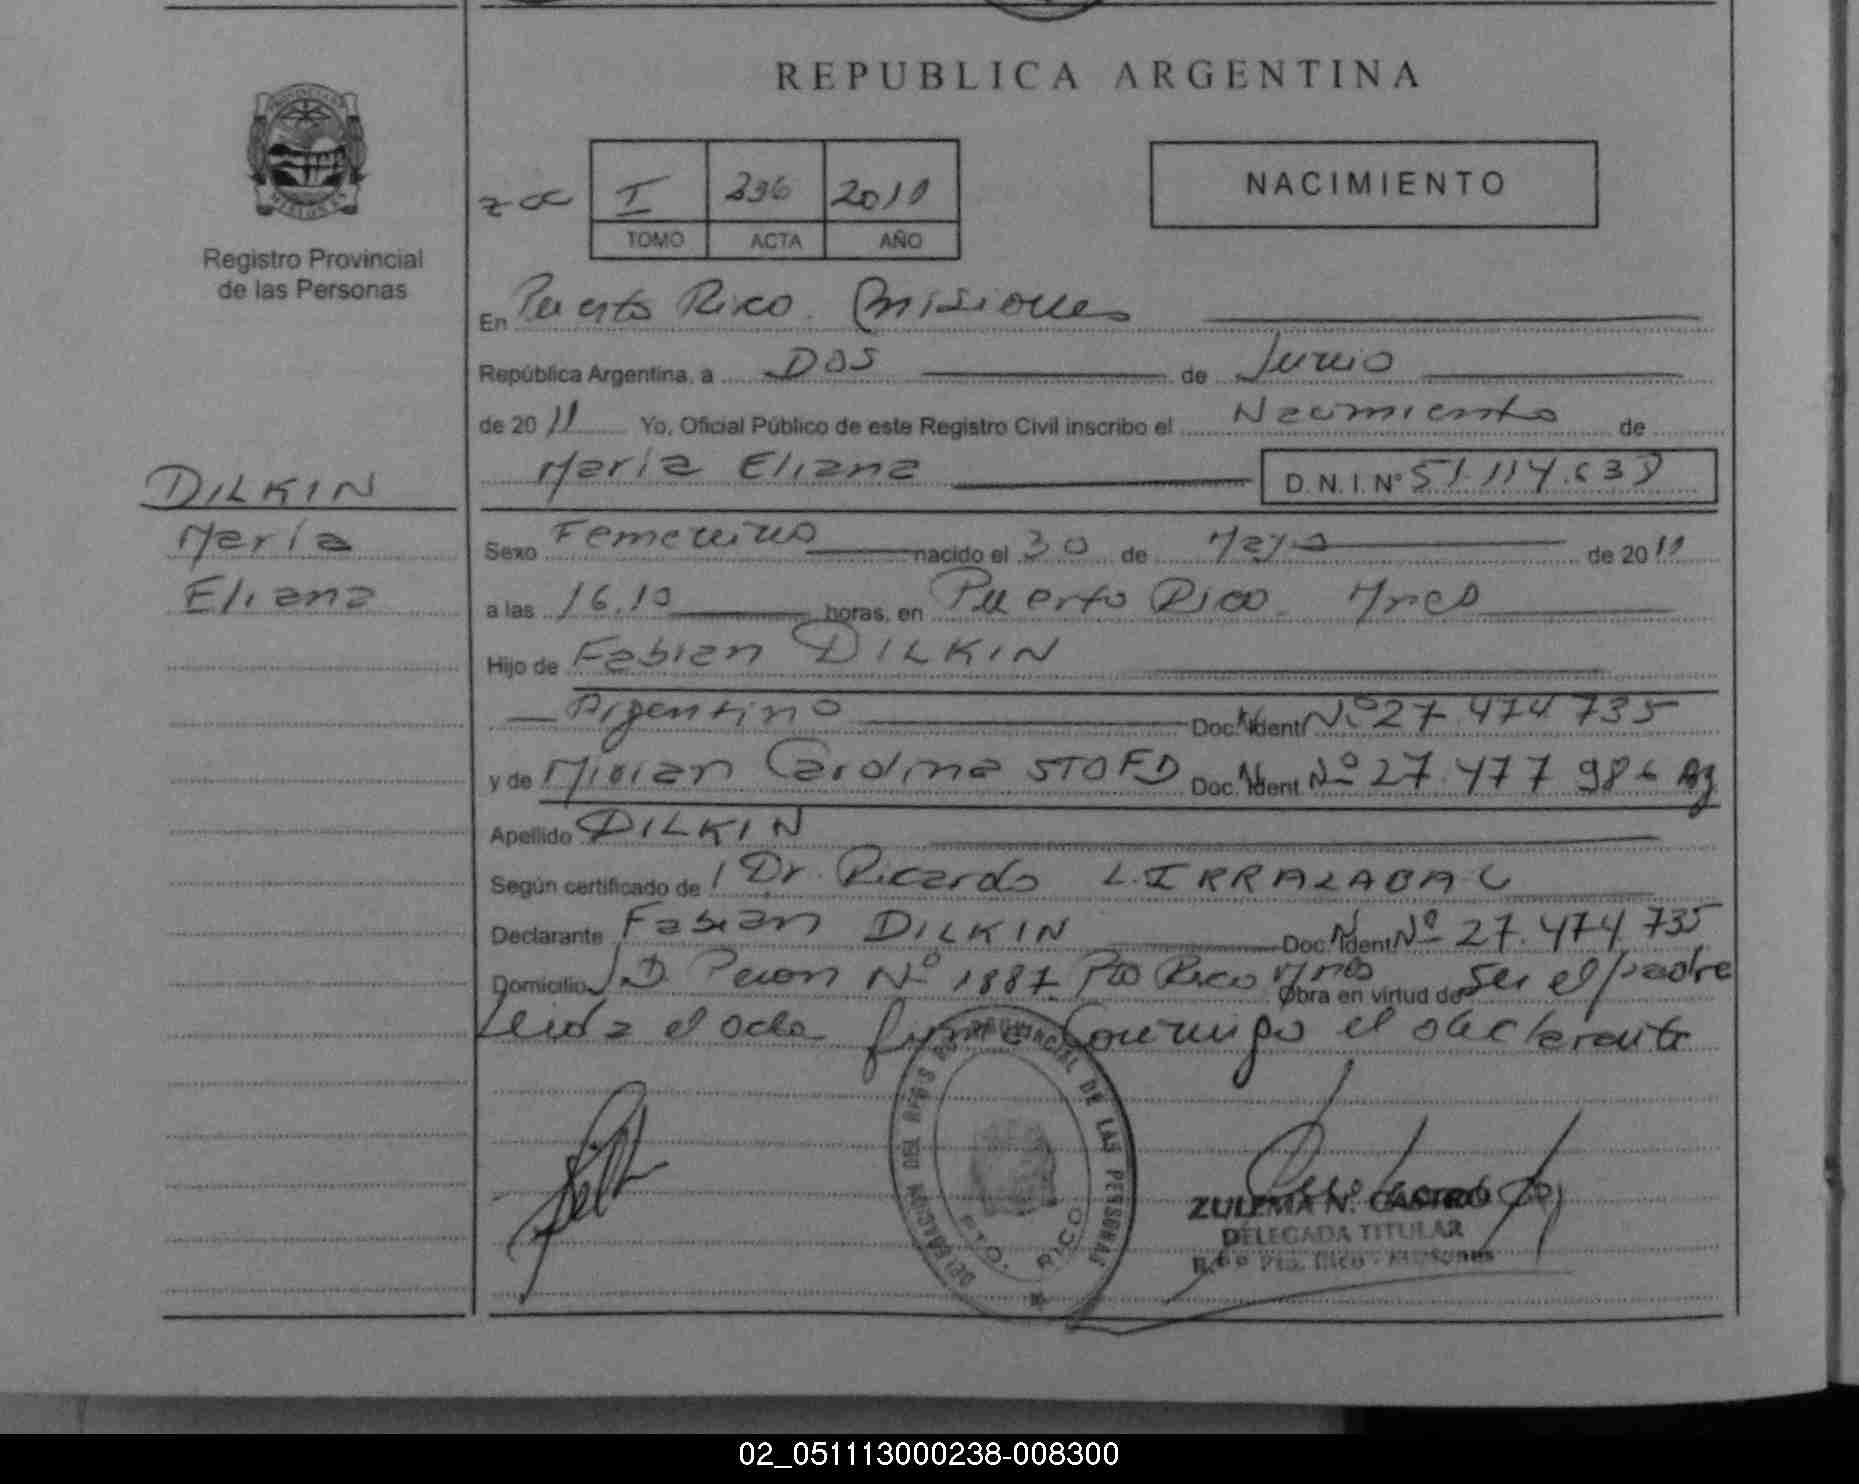 REPUBLICA ARGENTINA
PROVINCIA DE MISIONES
Registro Provincial
de las Personas
I 236 2011
TOMO ACTA AÑO
NACIMIENTO
En Puerto Rico. Misiones
República Argentina, a DOS de Junio
de 2011 Yo, Oficial Público de este Registro Civil inscribo el Nacimiento de
María Eliana D.N.I. Nº 51.114.638
DILKIN
María
Eliana
Sexo Femenino nacido el 30 de Mayo de 2011
a las 16.10 horas, en Puerto Rico. Mnes
Hijo de Fabian DILKIN
Argentino Doc. Ident Nº 27.474 735
y de Mirian Carolina STOFD Doc. Ident Nº 27.477 986 Arg
Apellido DILKIN
Según certificado de Dr. Ricardo L. IRRAZABAL
Declarante Fabian DILKIN Doc. Ident Nº 27.474 735
Domicilio J.D. Peron Nº 1887 Pto Rico Mnes Obra en virtud de Ser el padre
Leida el acta firma conmigo el declarante
DELEGACION DEL REGIS PROVINCIAL DE LAS PERSONAS
PTO. RICO
ZULEMA N. CASTRO
DELEGADA TITULAR
Pto. Rico - Misiones
02_051113000238-008300